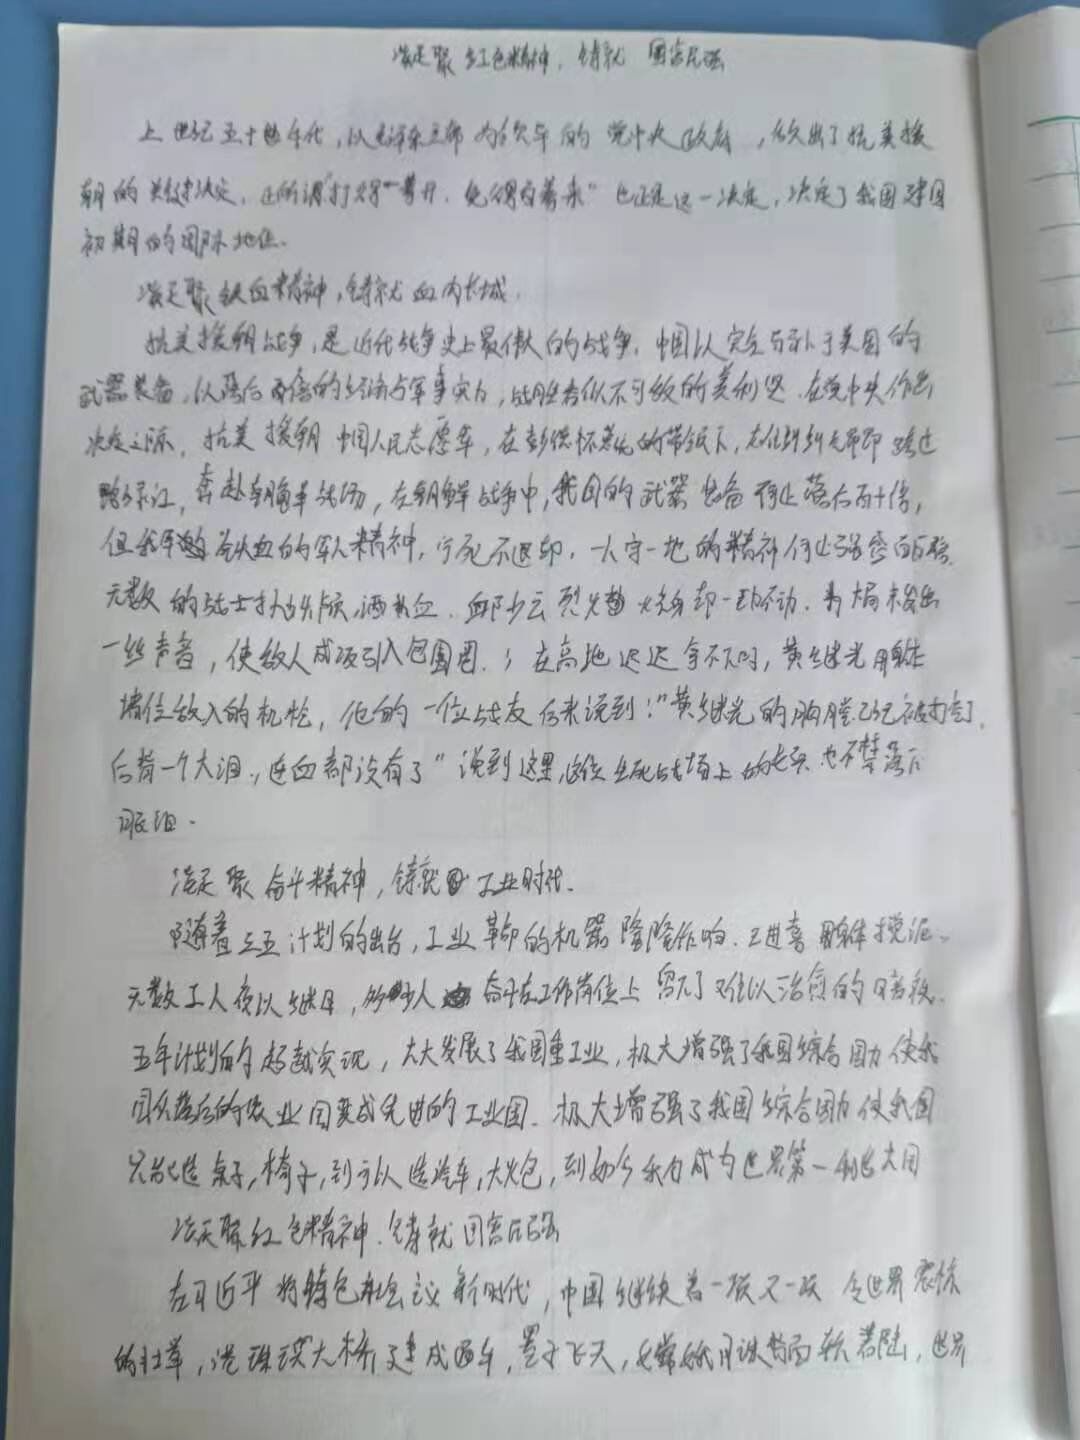 凝聚红色精神，铸就 国富民强
上世纪五十年代，以毛泽东主席为领导的党中央政府，做出了抗美援
朝的关键决定，正所谓"打得一拳开，免得百拳来"也正是这一决定，决定了我国建国
初期的国际地位.
凝聚铁血精神，铸就血肉长城.
抗美援朝战争，是近代战争史上最伟大的战争，中国以完全弱于美国的
武器装备，以落后 的经济与军事实力，战胜看似不可敌的美利坚.在党中央作出
决定之际，抗美援朝 中国人民志愿军，在彭德怀 的带领下， 跨过
鸭绿江，奔赴朝鲜战场，在朝鲜战争中，我国的武器装备何止落后百十倍，
但我军 铁血的军人精神，宁死不退却，人守一地的精神何止强盛百倍.
无数的战士抛头颅洒热血.邱少云烈火 烧身却一动不动. 未发出
一丝声音，使敌人成项引入包围圈.；在高地迟迟拿不下时，黄继光用身体
堵住敌人的机枪，他的一位战友后来说到："黄继光的胸膛已经被打空了，
后背一个大洞.，连血都没有了"说到这里，这位生死战场上的老兵也不禁落下
眼泪.
凝聚奋斗精神，铸就 工业时代.
随着一五计划的出台，工业革命的机器隆隆作响.王进喜用身体搅泥、
无数工人夜以继日， 多少人 奋斗在工作岗位上 留下了难以治愈的 .
五年计划的超越实现，大大发展了我国重工业，极大增强了我国综合国力使我
国从落后的农业国变成先进的工业国.极大增强了我国综合国力使我国
只能造桌子，椅子，到可以造汽车，大炮，到如今我为成为世界第一制造大国
凝聚红色精神.铸就国富民强
在习近平 特色社会主义新时代，中国继续着一项又一项 令世界震惊
的壮举，港珠澳大桥建成通车，墨子飞天，嫦娥月球背面软着陆，世界